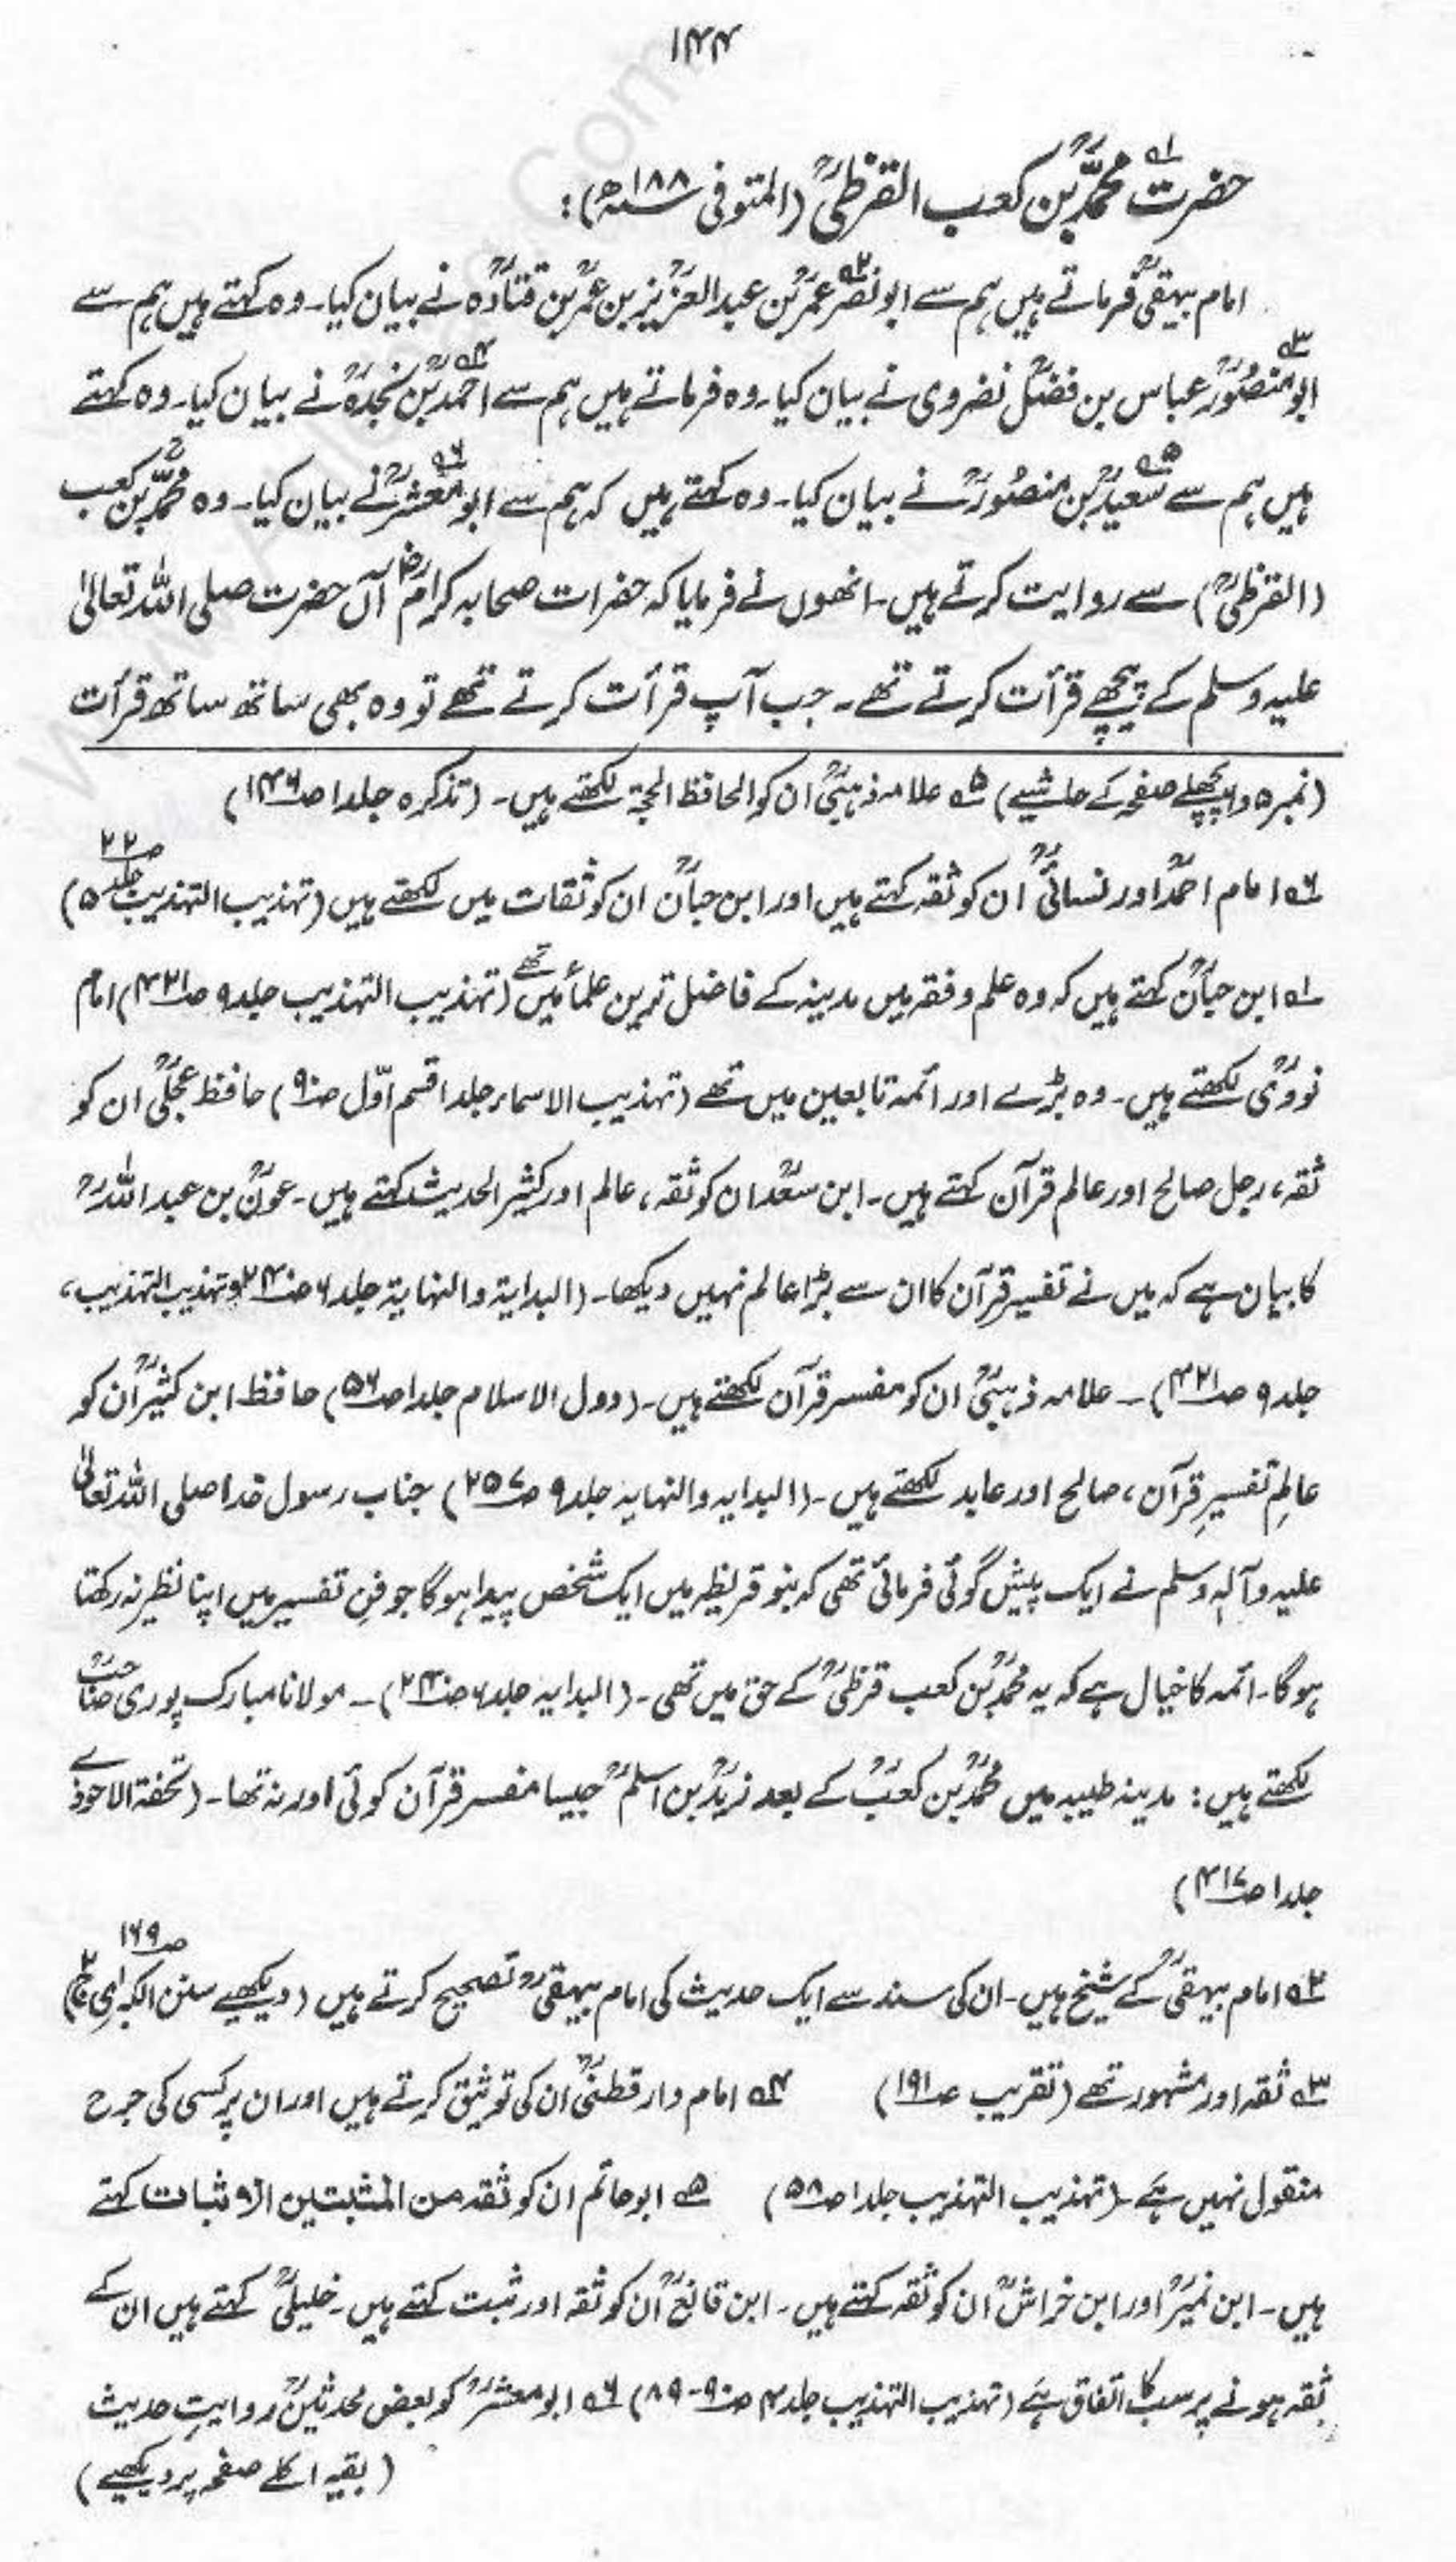 ۱۴۴
حضرت ۱ؔ محمدؒ بن کعب القرظیؒ (المتوفی ۱۸۸ھ):
امام بیہقیؒ فرماتے ہیں ہم سے ابو نصرؒ ۲ؔ عمرؒ بن عبدالعزیزؒ بن عمرؒ بن قتادہؒ نے بیان کیا۔ وہ کہتے ہیں ہم سے
ابو منصورؒ ۳ؔ عباس بن فضلؒ نضروی نے بیان کیا۔ وہ فرماتے ہیں ہم سے احمدؒ ۴ؔ بن نجدہؒ نے بیان کیا۔ وہ کہتے
ہیں ہم سے سعیدؒ ۵ؔ بن منصورؒ نے بیان کیا۔ وہ کہتے ہیں کہ ہم سے ابو معشرؒ ۶ؔ نے بیان کیا۔ وہ محمدؒ بن کعب
(القرظیؒ) سے روایت کرتے ہیں۔ انھوں نے فرمایا کہ حضرات صحابہ کرامؓ آں حضرت صلی اللہ تعالیٰ
علیہ وسلم کے پیچھے قرأت کرتے تھے۔ جب آپ قرأت کرتے تھے تو وہ بھی ساتھ ساتھ قرأت
(نمبر ۵ و ۶ پچھلے صفحہ کے حاشیے) ۵ؔ علامہ ذہبیؒ ان کو الحافظ الحجۃ لکھتے ہیں۔ (تذکرہ جلد ۱ ص۱۴۶)
۶ؔ امام احمدؒ اور نسائیؒ ان کو ثقہ کہتے ہیں اور ابن حبانؒ ان کو ثقات میں لکھتے ہیں (تہذیب التہذیب جلد ۵ ص۲۲)
۱ؔ ابن حبانؒ کہتے ہیں کہ وہ علم و فقہ میں مدینہ کے فاضل ترین علمأ میں تھے (تہذیب التہذیب جلد ۹ ص۴۲۱) امام
نوویؒ لکھتے ہیں۔ وہ بڑے اور ائمہ تابعین میں تھے (تہذیب الاسماء جلد ۱ قسم اوّل ص۹۰) حافظ عجلیؒ ان کو
ثقہ، رجل صالح اور عالم قرآن کہتے ہیں۔ ابن سعدؒ ان کو ثقہ، عالم اور کثیر الحدیث کہتے ہیں۔ عونؒ بن عبد اللہؒ
کا بیان ہے کہ میں نے تفسیر قرآن کا ان سے بڑا عالم نہیں دیکھا۔ (البدایۃ والنہایۃ جلد ۶ ص۲۴۰ و تہذیب التہذیب،
جلد ۹ ص۴۲۱)۔ علامہ ذہبیؒ ان کو مفسر قرآن لکھتے ہیں۔ (دول الاسلام جلد ۱ ص۵۶) حافظ ابن کثیرؒ ان کو
عالمِ تفسیرِ قرآن، صالح اور عابد لکھتے ہیں۔ (البدایہ والنہایہ جلد ۹ ص۲۵۷) جناب رسول خدا صلی اللہ تعالیٰ
علیہ وآلہٖ وسلم نے ایک پیش گوئی فرمائی تھی کہ بنو قریظہ میں ایک شخص پیدا ہوگا جو فنِ تفسیر میں اپنا نظیر نہ رکھتا
ہوگا۔ ائمہ کا خیال ہے کہ یہ محمدؒ بن کعب قرظیؒ کے حق میں تھی۔ (البدایہ جلد ۶ ص۲۴۰)۔ مولانا مبارک پوری صاحبؒ
لکھتے ہیں: مدینہ طیبہ میں محمدؒ بن کعبؒ کے بعد زیدؒ بن اسلمؒ جیسا مفسر قرآن کوئی اور نہ تھا۔ (تحفۃ الاحوذی
جلد ۱ ص۴۱۷)
۲ؔ امام بیہقیؒ کے شیخ ہیں۔ ان کی سند سے ایک حدیث کی امام بیہقیؒ تصحیح کرتے ہیں (دیکھیے سنن الکبرٰی ج۲ ص۱۶۹)
۳ؔ ثقہ اور مشہور تھے (تقریب ص۱۹۱) ۴ؔ امام دارقطنیؒ ان کی توثیق کرتے ہیں اور ان پر کسی کی جرح
منقول نہیں ہے۔ (تہذیب التہذیب جلد ۱ ص۵۸) ۵ؔ ابو حاتم ان کو ثقہ من المثبتین الاثبات کہتے
ہیں۔ ابن نمیرؒ اور ابن خراشؒ ان کو ثقہ کہتے ہیں۔ ابن قانعؒ ان کو ثقہ اور ثبت کہتے ہیں۔ خلیلیؒ کہتے ہیں ان کے
ثقہ ہونے پر سب کا اتفاق ہے (تہذیب التہذیب جلد ۴ ص۹۰-۸۹) ۶ؔ ابو معشرؒ کو بعض محدثینؒ روایتِ حدیث
(بقیہ اگلے صفحہ پر دیکھیے)